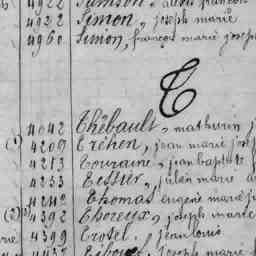 4922 Samson, alexis françois
4922 Simon, joseph marie
4960 Simon, françois marie joseph
T
4042 Thébault, mathurin j
(1) 4209 Tréhen, jean marie jose
4213 Touraine, jean bapte
4233 Tessier, julien marie
4242 Thomas eugène marie j
(2) 4392 Thoreux, joseph marie
4399 Trotel, jean louis
4437 joseph marie